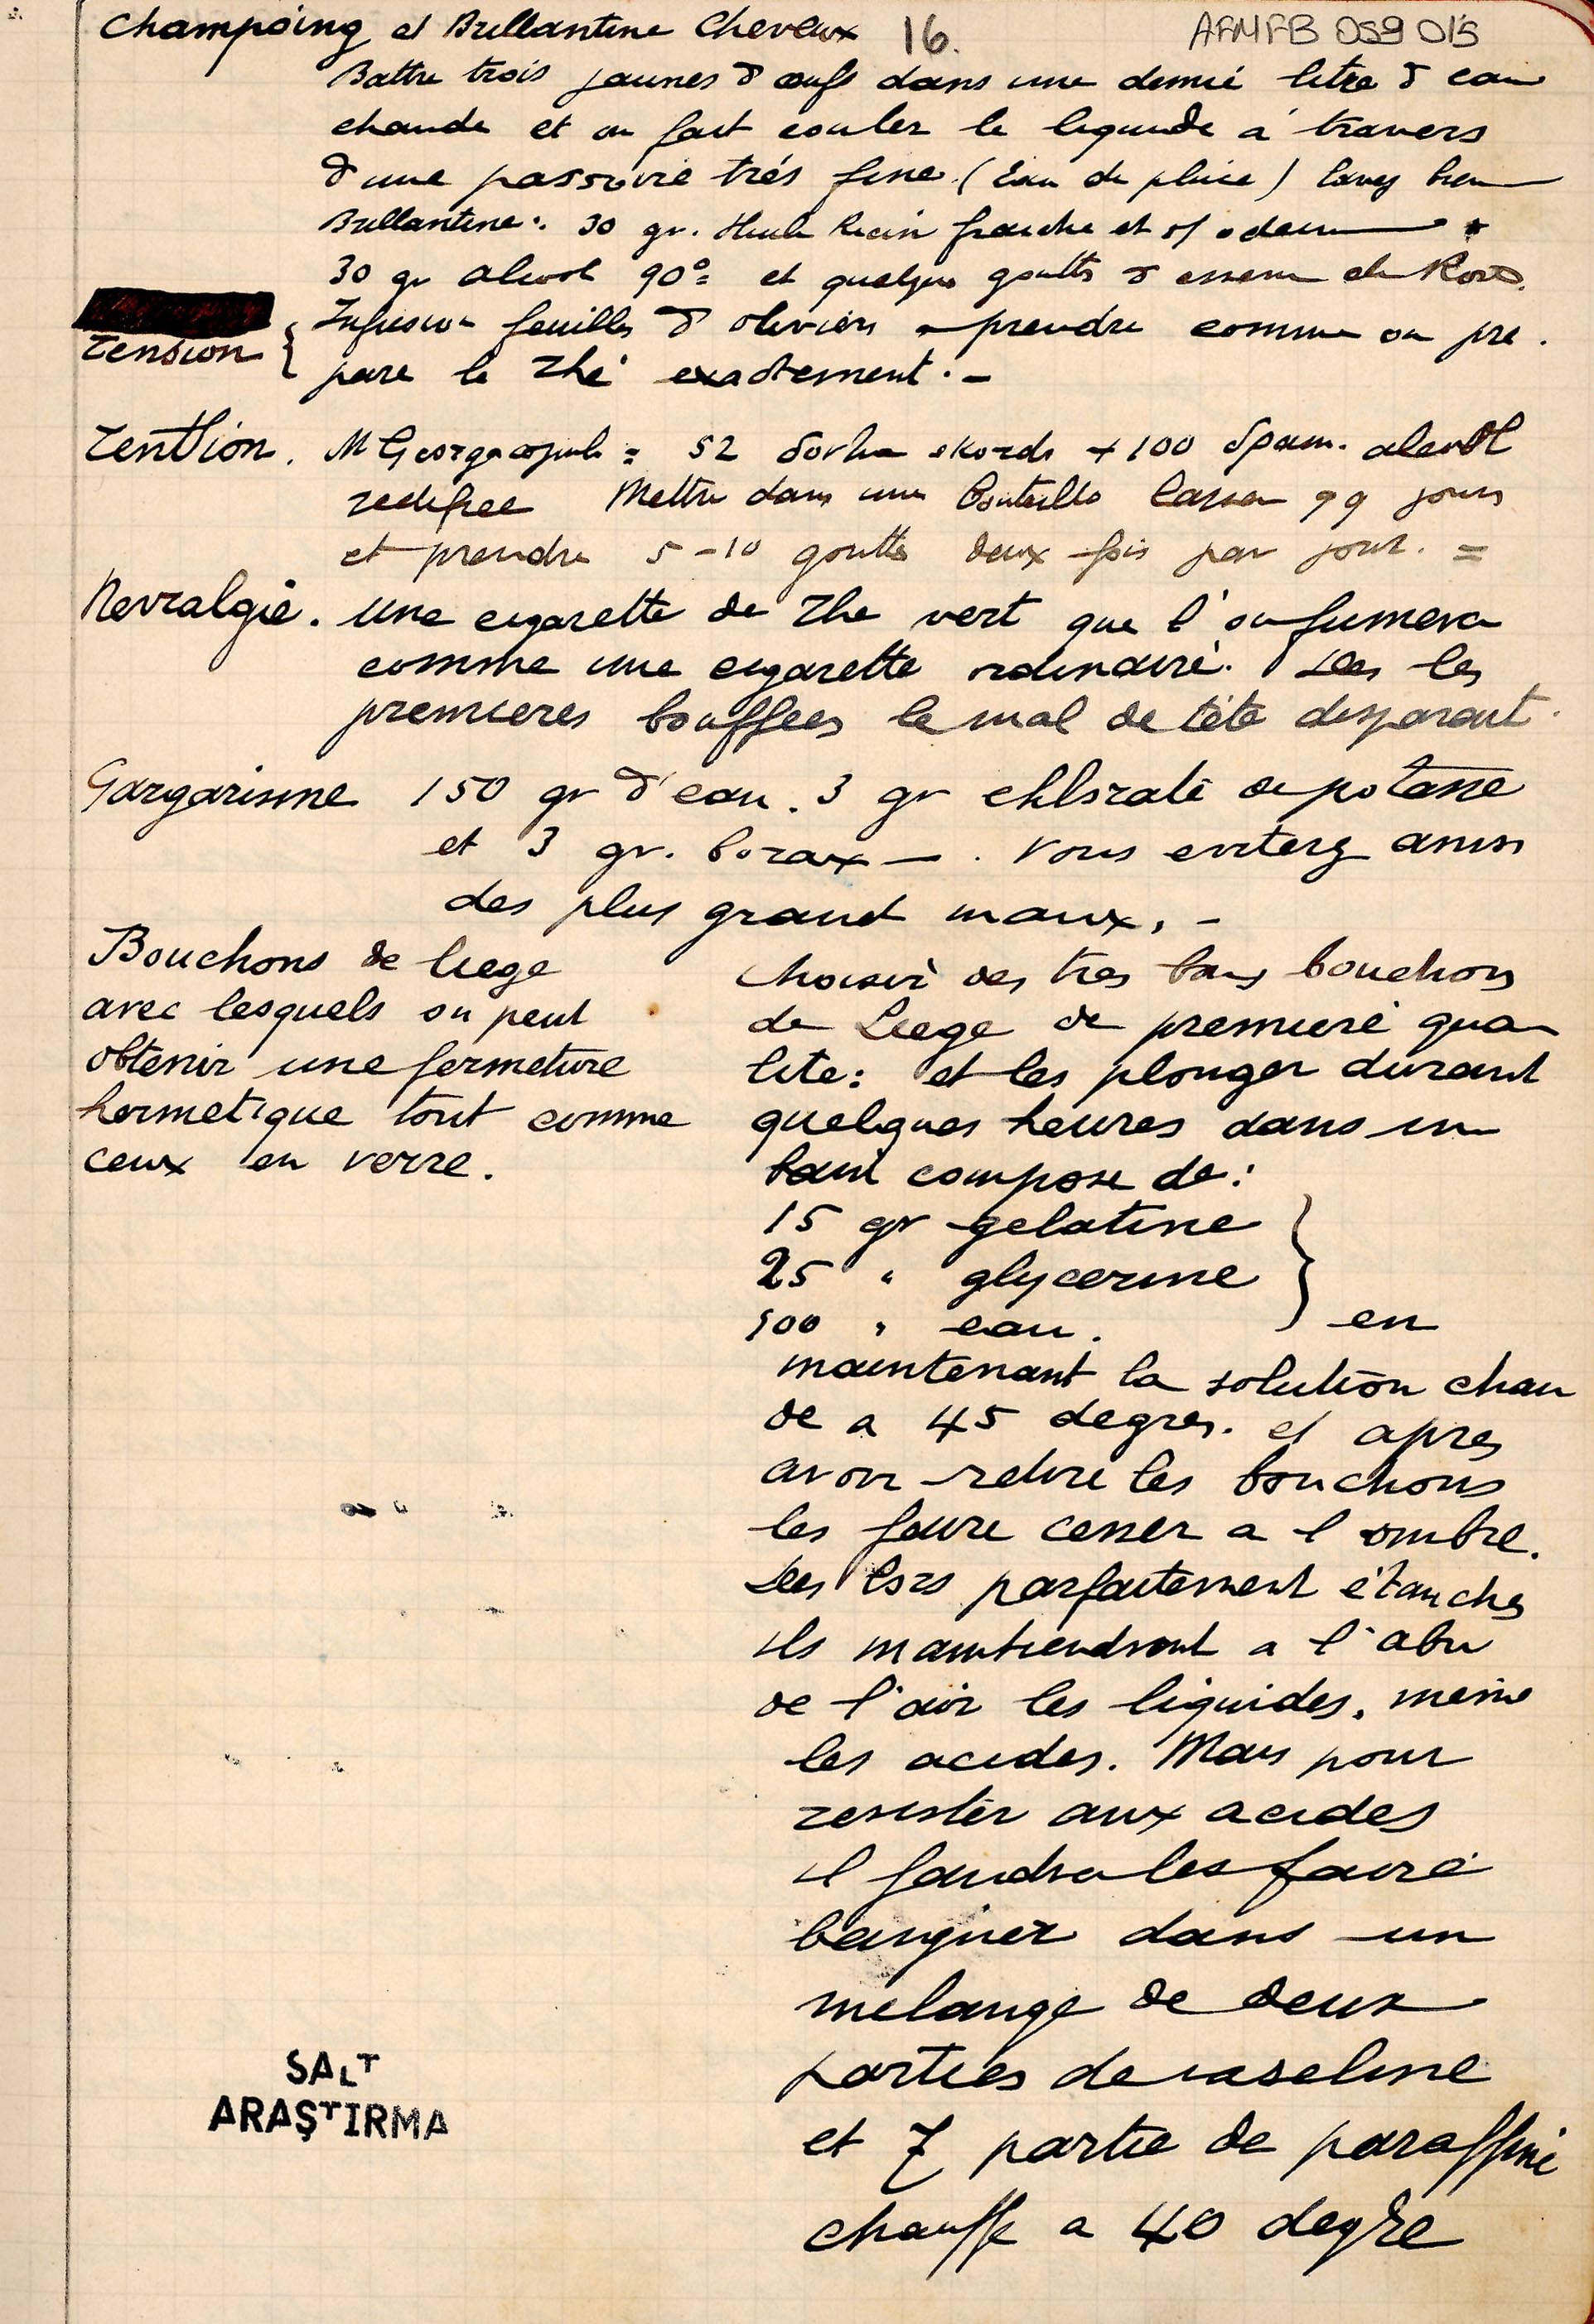 Champoing et Brillantine Cheveux 16. AFMFB 059 015
Battre trois jaunes d œufs dans une demie litre d eau
chaude et on fait couler le liquide a travers
d une passoire trés fine. (Eau de pluie) lavez bien
Brillantine: 30 gr. Huile Ricin fraiche et s/ odeur
30 gr alcool 90° = et quelques goutts d essence de Rose.
Tension { Infusion feuilles d olivier a prendre comme on pre
pare le Thé exactement. -
Tenttion. M Georgacopulo = 52 skordo + 100 δραμ. alcool
redifiee Mettre dans une bouteille laisser 99 jours
et prendre 5-10 gouttes deux fois par jour. =
Nevralgie. Une cigarette de The vert que l'on fumera
comme une cigarette ordinaire. Des les
premieres bouffees le mal de tête disparait.
Gargarisme 150 gr d'eau. 3 gr chlorate de potasse
et 3 gr. borax -. Vous eviterez ainsi
des plus grand maux. -
Bouchons de liege
avec lesquels on peut
obtenir une fermeture
hermetique tout comme
ceux en verre.
Choisir des tres bons bouchons
de Liege de premiere qua
lite: et les plonger durant
quelques heures dans un
bain compose de:
15 gr gelatine
25 " glycerine
500 " eau. } en
maintenant la solution chau
de a 45 degres. et apres
avoir retire les bouchons
les faire cesser a l ombre.
Des lors parfaitement étanches
ils maintiendront a l'abri
de l'air les liquides, meme
les acides. Mais pour
resister aux acides
il faudra les faire
baigner dans un
melange de deux
parties de vaseline
et 7 partie de paraffine
chauffe a 40 degre
SALT
ARAŞTIRMA